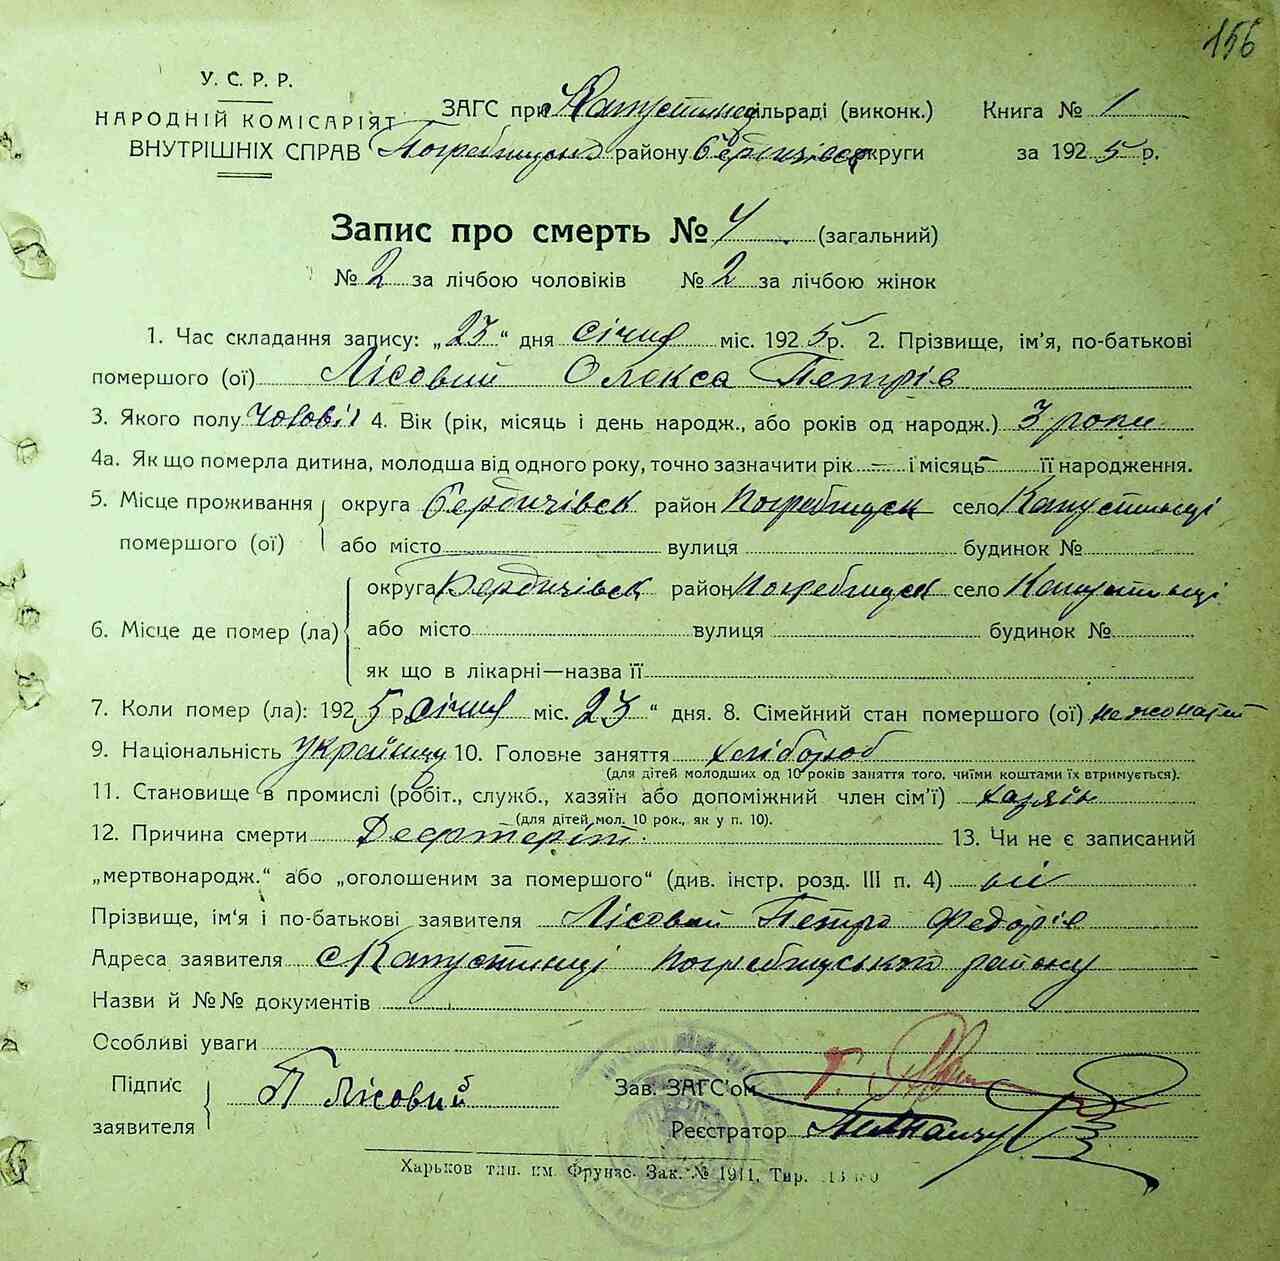 156
У.С.Р.Р.
НАРОДНІЙ КОМІСАРІЯТ
ВНУТРІШНІХ СПРАВ
ЗАГС при Капустинец сільраді (виконк.) Книга № 1
Погребищенс району Бердичівск округи за 1925 р.
Запис про смерть № 4 (загальний)
№ 2 за лічбою чоловіків № 2 за лічбою жінок
1. Час складання запису: „23“ дня січня міс. 1925 р. 2. Прізвище, ім'я, по-батькові
помершого (ої) Лісовий Олекса Петрів
3. Якого полу чолові 4. Вік (рік, місяць і день народж., або років од народж.) 3 роки
4а. Як що померла дитина, молодша від одного року, точно зазначити рік — і місяць — її народження.
5. Місце проживання помершого (ої) округа Бердичівск район Погребищск село Капустинці
або місто вулиця будинок №
6. Місце де помер (ла) округа Бердичівск район Погребищск село Капустинці
або місто вулиця будинок №
як що в лікарні—назва її
7. Коли помер (ла): 1925 р. січня міс. 23 “ дня. 8. Сімейний стан помершого (ої) нежонатий
9. Національність Українец 10. Головне заняття хлібороб
(для дітей молодших од 10 років заняття того, чиїми коштами їх втримується).
11. Становище в промислі (робіт., служб., хазяїн або допоміжний член сім'ї) хазяїн
(для дітей мол. 10 рок., як у п. 10).
12. Причина смерти Дефтеріт. 13. Чи не є записаний
„мертвонародж.“ або „оголошеним за помершого“ (див. інстр. розд. III п. 4) ні
Прізвище, ім'я і по-батькові заявителя Лісовий Петро Федорів
Адреса заявителя с Капустинці Погребищського району
Назви й №№ документів
Особливі уваги
Підпис заявителя П Лісовий
Зав. ЗАГС'ом
Реєстратор
Харьков тип. им. Фрунзе. Зак. № 1911, Тир.